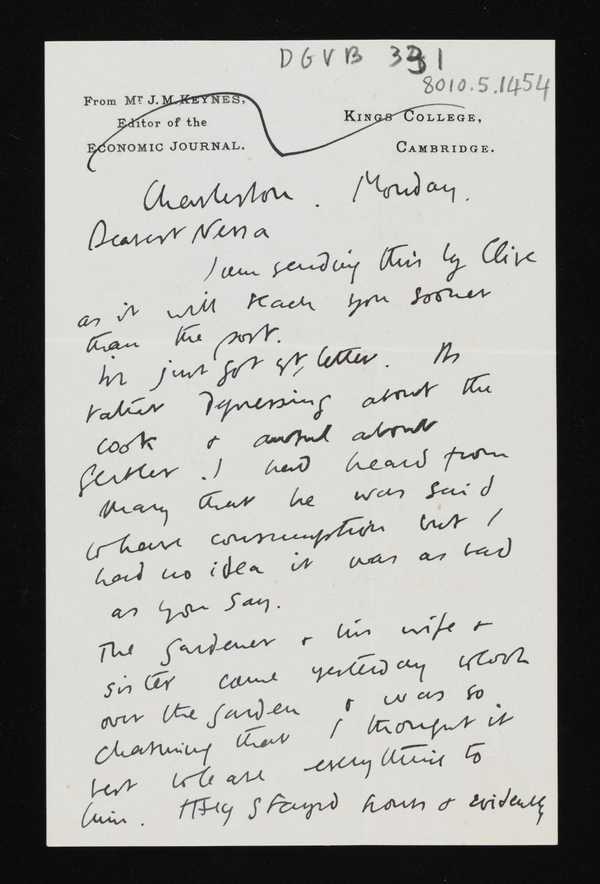 DGVB 331
8010.5.1454
From Mr. J. M. KEYNES,
Editor of the
ECONOMIC JOURNAL.
KINGS COLLEGE,
CAMBRIDGE.
Charleston. Monday.
Dearest Nessa
I am sending this by Clive
as it will reach you sooner
than the post.
I've just got yr letter. Its
rather depressing about the
cook & awful about
Gertler. I had heard from
Mary that he was said
to have consumption but I
had no idea it was as bad
as you say.
The gardener & his wife &
sister came yesterday to look
over the garden & was so
charming that I thought it
best to leave everything to
him. They stayed hours & evidently